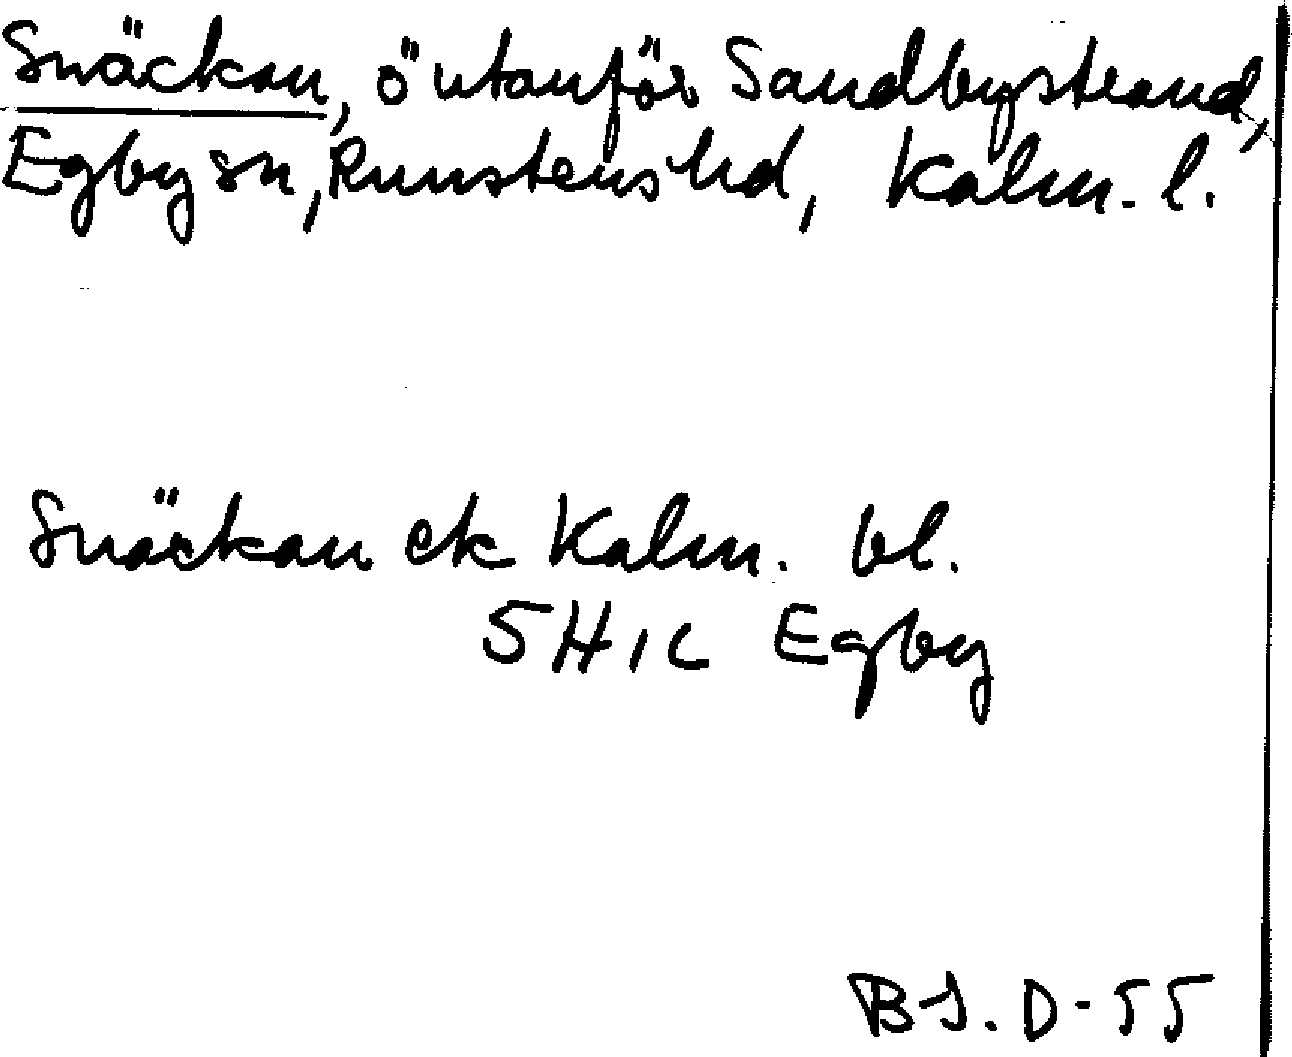 Snäckan, ö utanför Sandbystrand,
Egby sn, Runstens hd, Kalm. l.
Snäckan ek Kalm. bl.
5H1c Egby
B-J. D-55